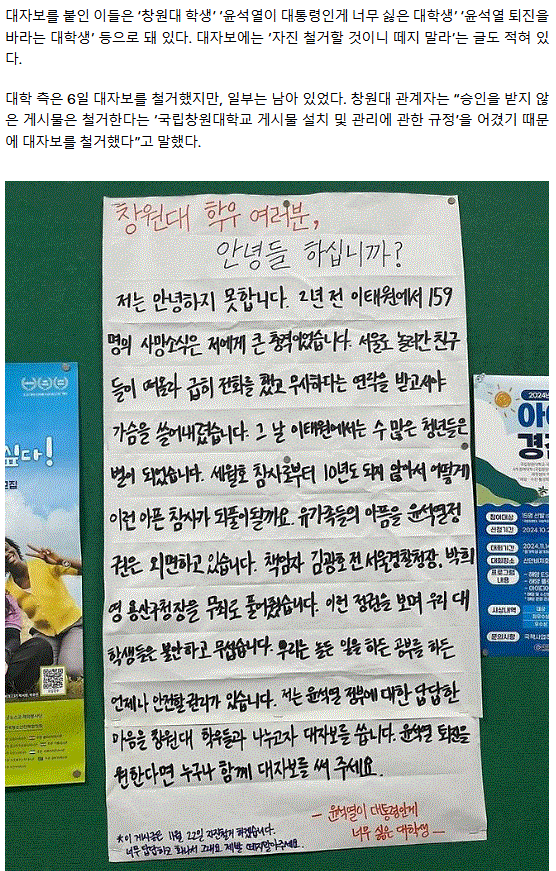 대자보를 붙인 이들은 '창원대 학생' '윤석열이 대통령인게 너무 싫은 대학생' '윤석열 퇴진을
바라는 대학생' 등으로 돼 있다. 대자보에는 '자진 철거할 것이니 떼지 말라'는 글도 적혀 있
다.
대학 측은 6일 대자보를 철거했지만, 일부는 남아 있었다. 창원대 관계자는 "승인을 받지 않
은 게시물은 철거한다는 '국립창원대학교 게시물 설치 및 관리에 관한 규정'을 어겼기 때문
에 대자보를 철거했다"고 말했다.
창원대 학우 여러분,
안녕들 하십니까?
저는 안녕하지 못합니다. 2년 전 이태원에서 159
명의 사망소식은 저에게 큰 충격이었습니다. 서울로 놀러간 친구
들이 떠올라 급히 전화를 했고 무사하다는 연락을 받고서야
가슴을 쓸어내렸습니다. 그 날 이태원에서는 수 많은 청년들은
별이 되었습니다. 세월호 참사로부터 10년도 되지 않아서 어떻게
이런 아픈 참사가 되풀이될까요. 유가족들의 아픔을 윤석열정
권은 외면하고 있습니다. 책임자 김광호 전 서울경찰청장, 박희
영 용산구청장을 무죄로 풀어줬습니다. 이런 정권을 보며 우리 대
학생들은 불안하고 무섭습니다. 우리는 놀든 일을 하든 공부를 하든
언제나 안전할 권리가 있습니다. 저는 윤석열 정부에 대한 답답한
마음을 창원대 학우들과 나누고자 대자보를 씁니다. 윤석열 퇴진을
원한다면 누구나 함께 대자보를 써 주세요.
- 윤석열이 대통령인게
너무 싫은 대학생 -
*이 게시글은 11월 22일 자진철거 하겠습니다.
너무 답답하고 화나서 그래요. 제발 떼지말아주세요.
싶다!
모집
2024년
아이
경진
참여대상
신청기간 2024.10.
대회기간 2024.11.
대회장소
프로그램
내용
시상내역
문의사항